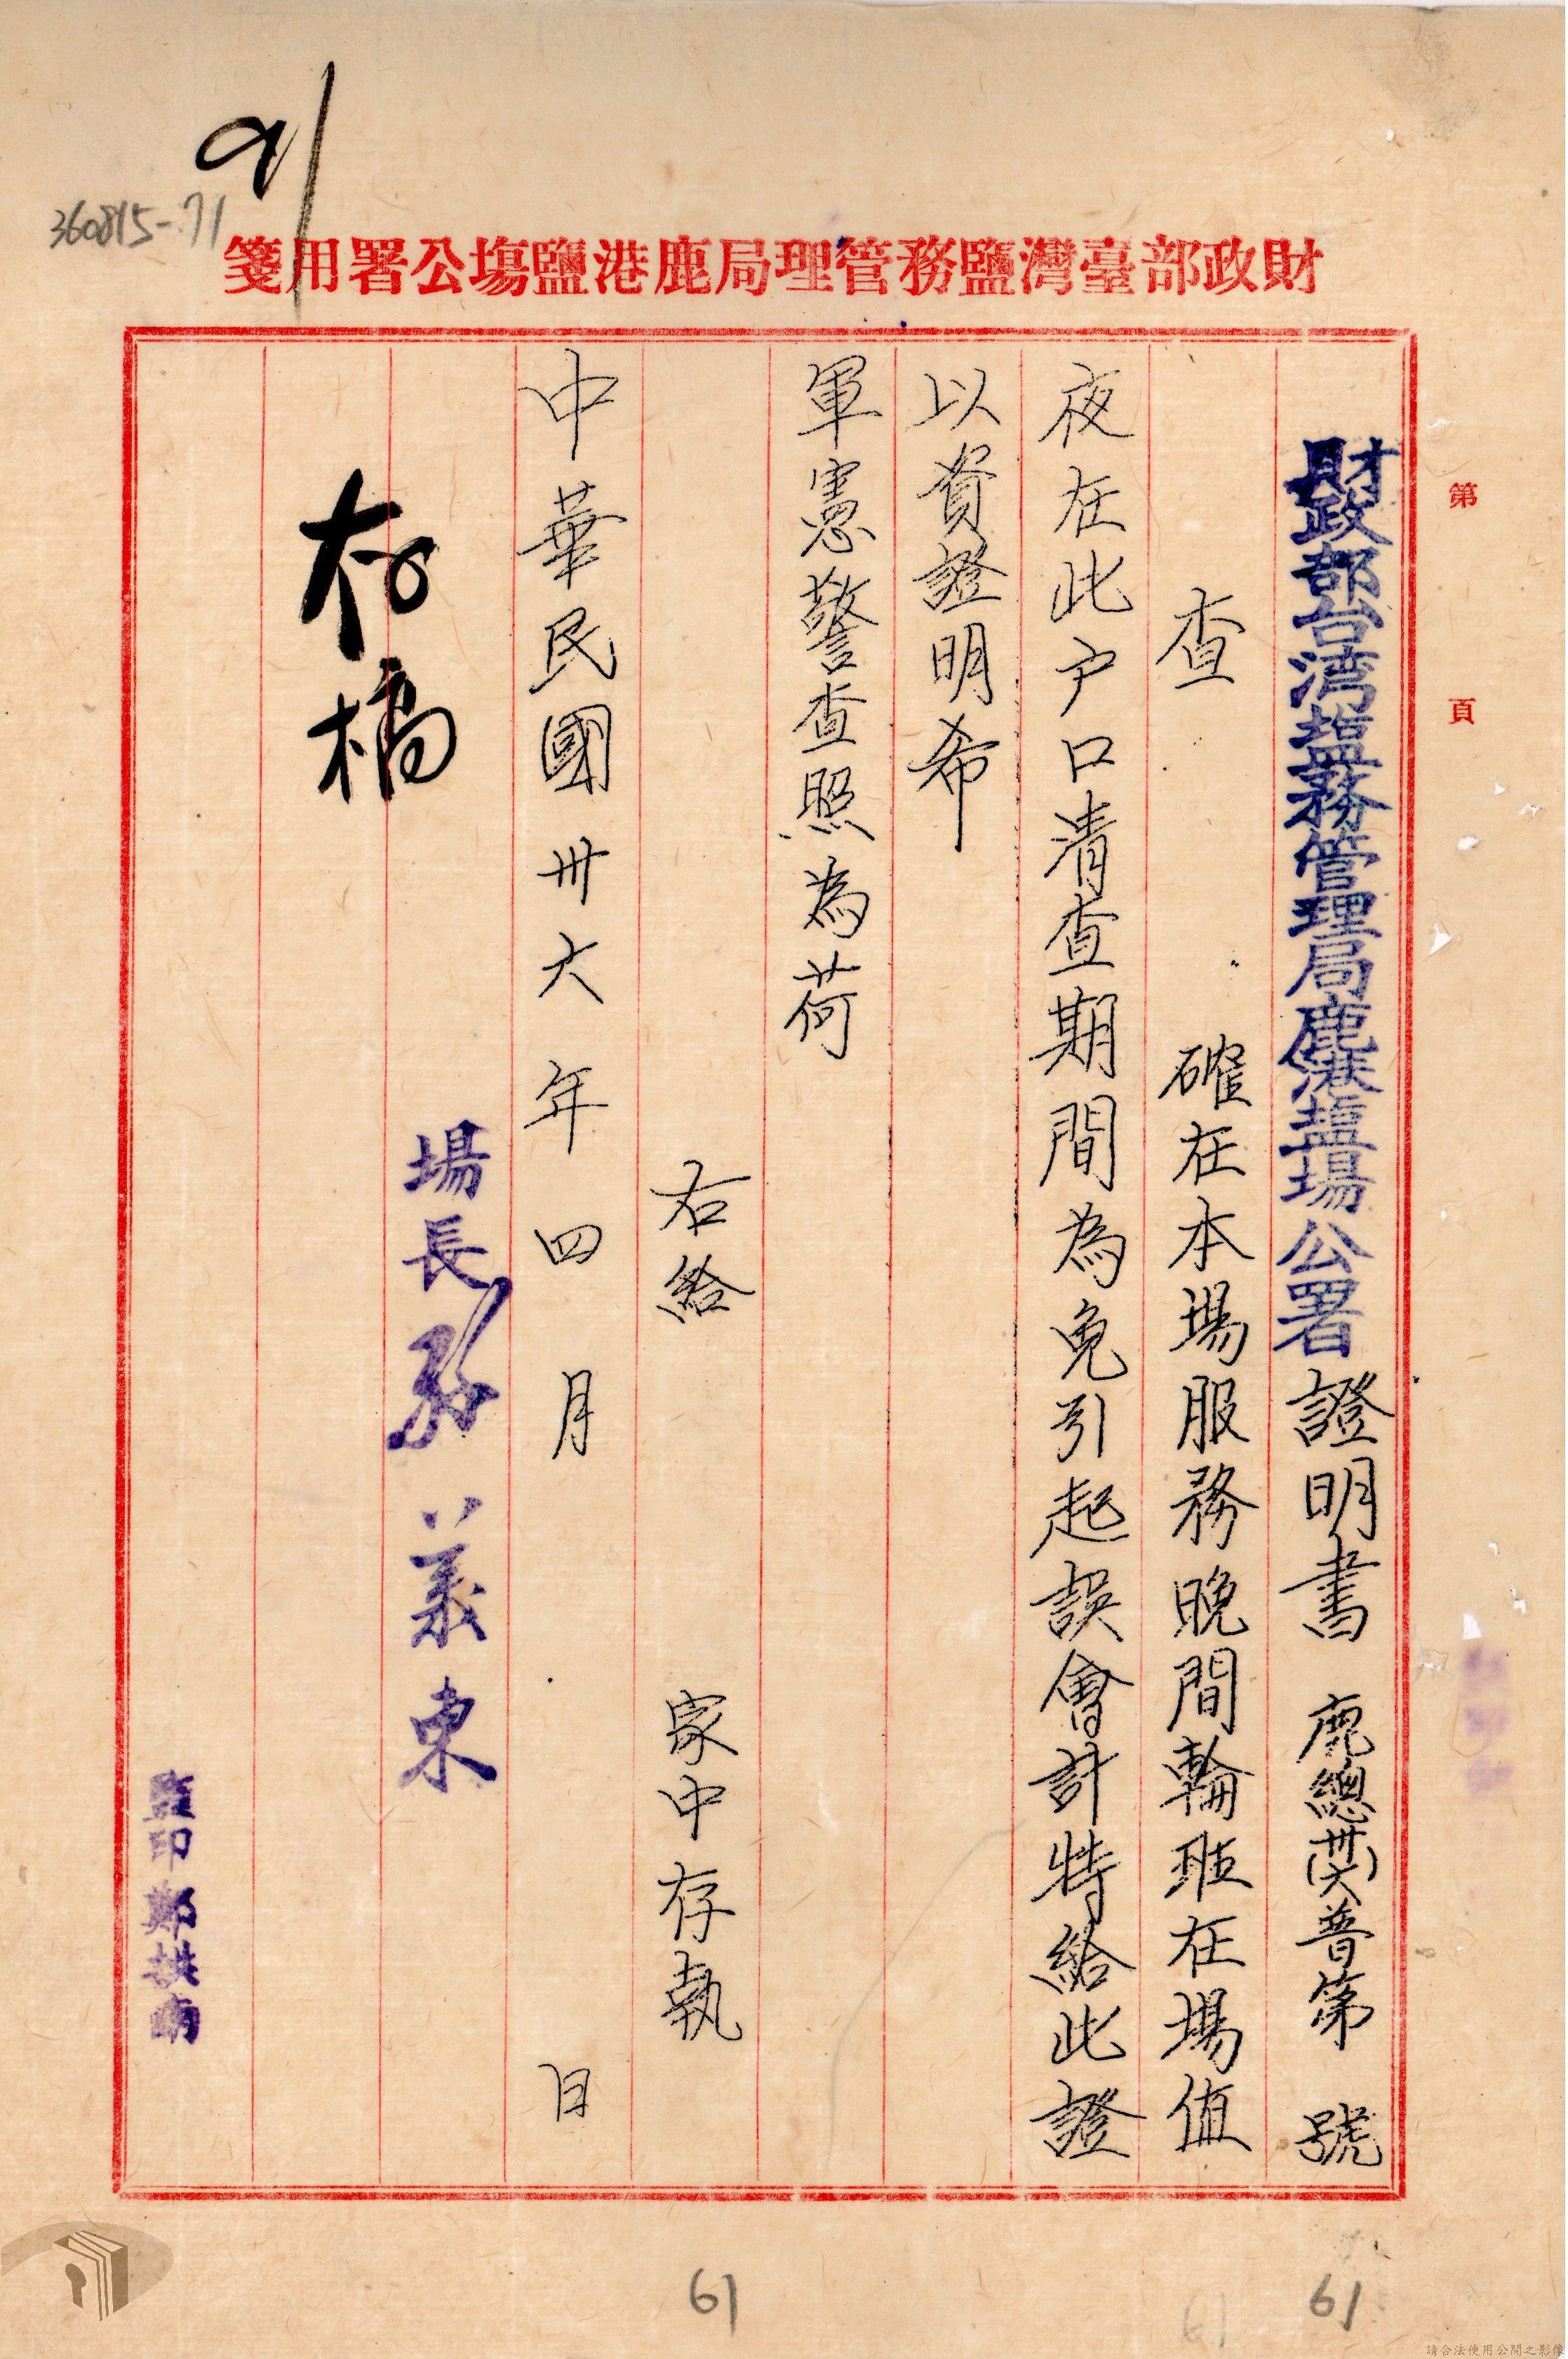 91
360815-71
財政部臺灣鹽務管理局鹿港鹽場公署用箋
第 頁
財政部台湾塩務管理局鹿港塩場公署證明書 鹿總(卅六)普第 號
查 確在本場服務晚間輪班在場值
夜在此户口清查期間為免引起誤會計特給此證
以資證明希
軍憲警查照為荷
右給 家中存執
中華民國卅六年四月 日
場長 義東
存稿
監印鄭拱南
61
61
61
請合法使用公開之影像